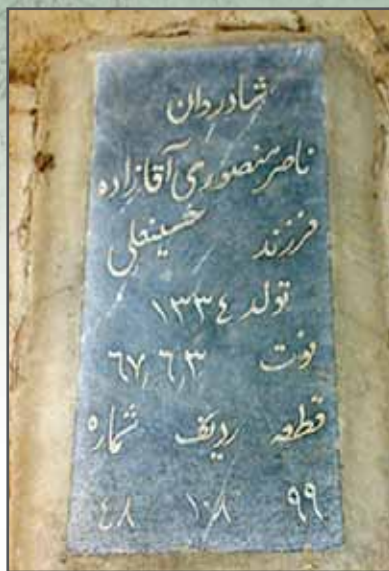 شادروان
ناصر منصوری آقازاده
فرزند حسینعلی
تولد ۱۳۳٤
فوت ٦٧٫٦٫٣
قطعه ردیف شماره
۹۹ ۱۰۸ ٤۸